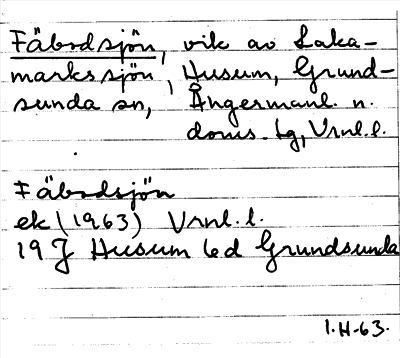 Fäbodsjön, vik av Laka-
markssjön, Husum, Grund-
sunda sn, Ångermanl. n.
doms. lg, Vrnl.l.
Fäbodsjön
ek (1963) Vrnl.l.
19 J Husum 6d Grundsunda
I.H-63.